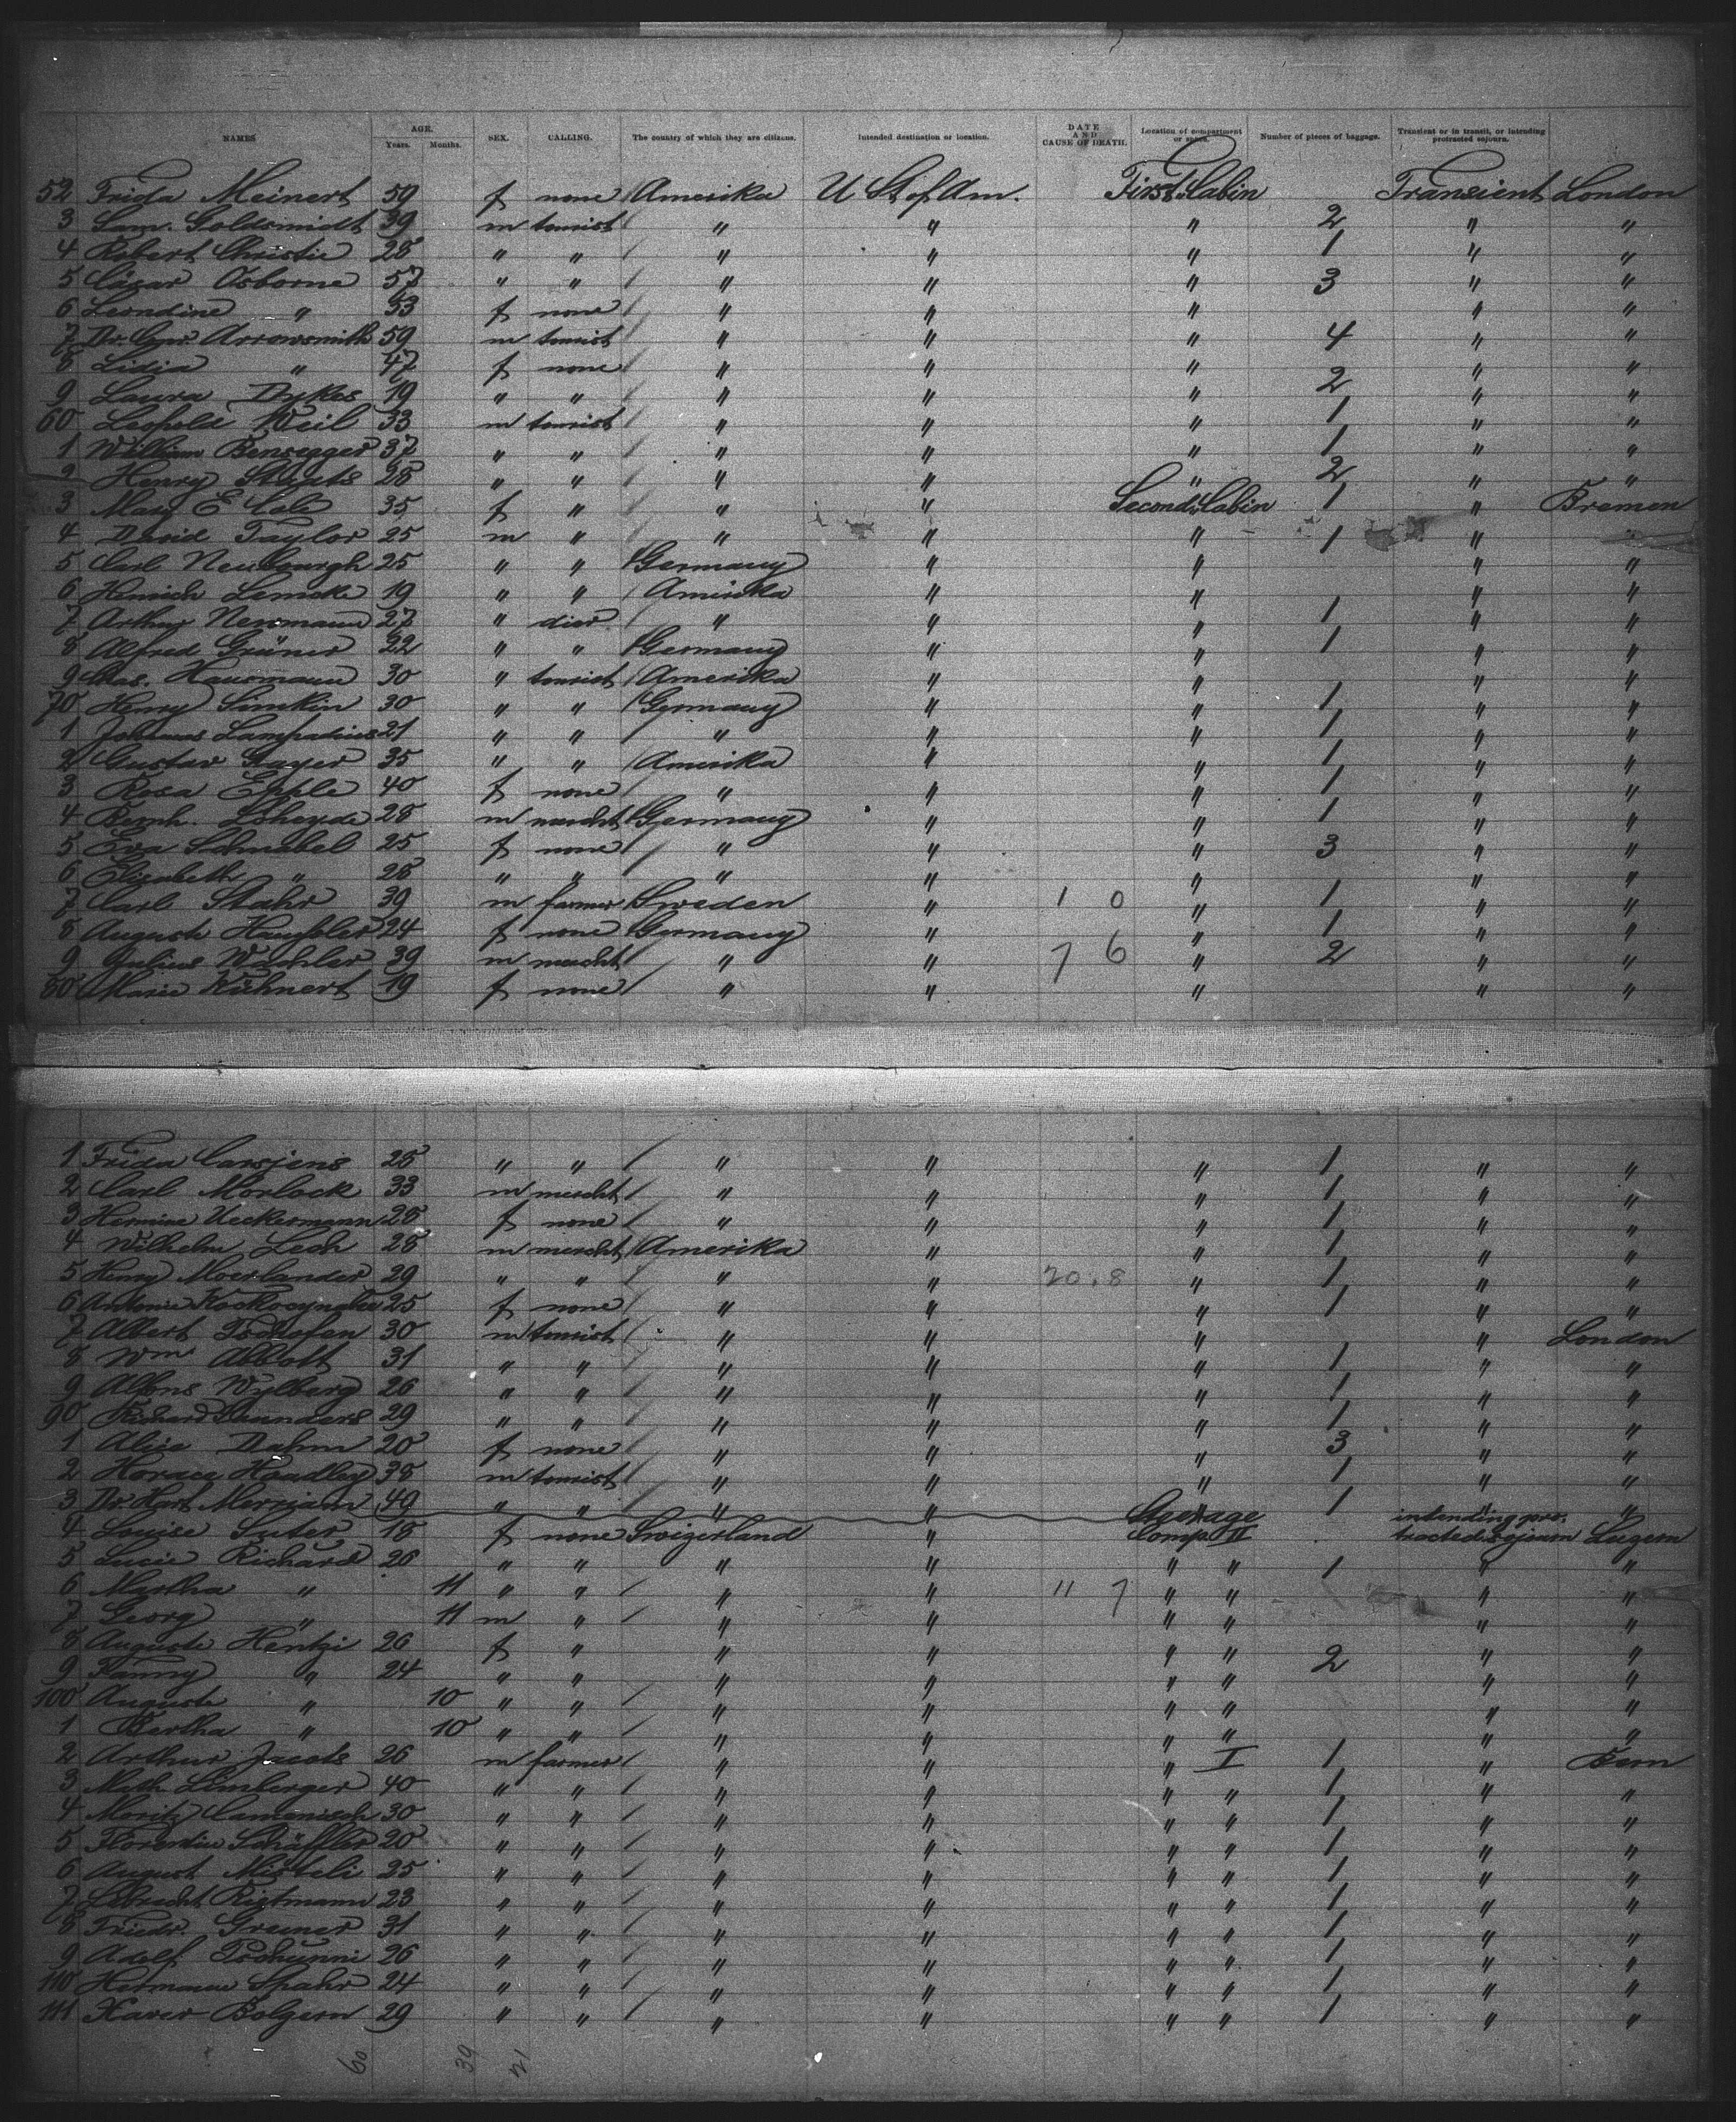 NAMES AGE. Years. Months. SEX. CALLING. The country of which they are citizens. Intended destination or location. DATE AND CAUSE OF DEATH. Location of compartment or space. Number of pieces of baggage. Transient or in transit, or intending protracted sojourn.
52 Frida Meinert 59 f none Amerika U St of Am. First Cabin Transient London
3 Sam. Goldsmidt 39 m tourist " " " 2 " "
4 Robert Christie 28 " " " " " 1 " "
5 Cäsar Osborne 57 " " " " " 3 " "
6 Leondine " 53 f none " " " " "
7 Dr. Arrowsmith 59 m tourist " " " 4 " "
8 Lidia " 47 f none " " " " "
9 Laura Dykes 19 " " " " " 2 " "
60 Leopold Weil 33 m tourist " " " 1 " "
1 William Bensegger 37 " " " " " 1 " "
2 Henry 28 " " " " " 2 " "
3 Mary E Cole 35 f " " " Second Cabin 1 " Bremen
4 David Taylor 25 m " " " " 1 " "
5 Carl Neubourgh 25 " " Germany " " " "
6 Heinrich Lemcke 19 " " Amerika " " " "
7 Arthur Newmann 27 " dier " " " 1 " "
8 Alfred Grüner 22 " " Germany " " 1 " "
9 Chas. Hausmann 30 " tourist Amerika " " " "
70 Henry Simkin 30 " " Germany " " 1 " "
1 Johannes Lampadius 21 " " " " " 1 " "
2 Gustav Grayer 35 " " Amerika " " 1 " "
3 Rosa Epple 40 f none " " " 1 " "
4 Bernh. 28 m mercht Germany " " 1 " "
5 Eva Schnabel 25 f none " " " 3 " "
6 Elisabeth " 28 " " " " " " "
7 Carl Stahr 39 m farmer Sweden " 1 0 " 1 " "
8 August 24 f none Germany " " 1 " "
9 Julius Wechler 39 m mercht " " 7 6 " 2 " "
80 Marie Kühnert 19 f none " " " " "
1 Frida Carsjens 28 " " " " " 1 " "
2 Carl Morlock 33 m mercht " " " 1 " "
3 Hermine Ueckermann 28 f none " " " 1 " "
4 Wilhelm Lech 28 m mercht Amerika " " 1 " "
5 Henry Moerlander 29 " " " " 20.8 " 1 " "
6 Antonie 25 f none " " " 1 " "
7 Albert Tschofen 30 m tourist " " " " London
8 Wm Abbott 31 " " " " " 1 " "
9 Alfons Wylberg 26 " " " " " 1 " "
90 Richard Saunders 29 " " " " " 1 " "
1 Alice Dahm 20 f none " " " 3 " "
2 Horace Hoadley 38 m tourist " " " 1 " "
3 Dr. Hart Merriam 49 " " " " " 1 " "
4 Louise Suter 18 f none Swizerland " Steerage Comp. II intending protracted sojourn Luzern
5 Lucie Richard 26 " " " " " " 1 " "
6 Martha " 11 " " " " 11 7 " " " "
7 Georg " 11 m " " " " " " "
8 Auguste Hentzi 26 f " " " " " 2 " "
9 Fanny " 24 " " " " " " " "
100 Auguste " 10 " " " " " " " "
1 Bertha " 10 " " " " " " " "
2 Arthur Jacots 26 m farmer " " " I 1 " Bern
3 Math. Limberger 40 " " " " " " 1 " "
4 Moritz Camenisch 30 " " " " " " 1 " "
5 Florentin Schäffler 20 " " " " " " 1 " "
6 August Misteli 25 " " " " " " 1 " "
7 Lebrecht Rietmann 23 " " " " " " 1 " "
8 Friedr. Greiner 31 " " " " " " 1 " "
9 Adolf Tschumi 26 " " " " " " 1 " "
110 Hermann Spahr 24 " " " " " " 1 " "
111 Xaver Bolgern 29 " " " " " " 1 " "
60 39 21